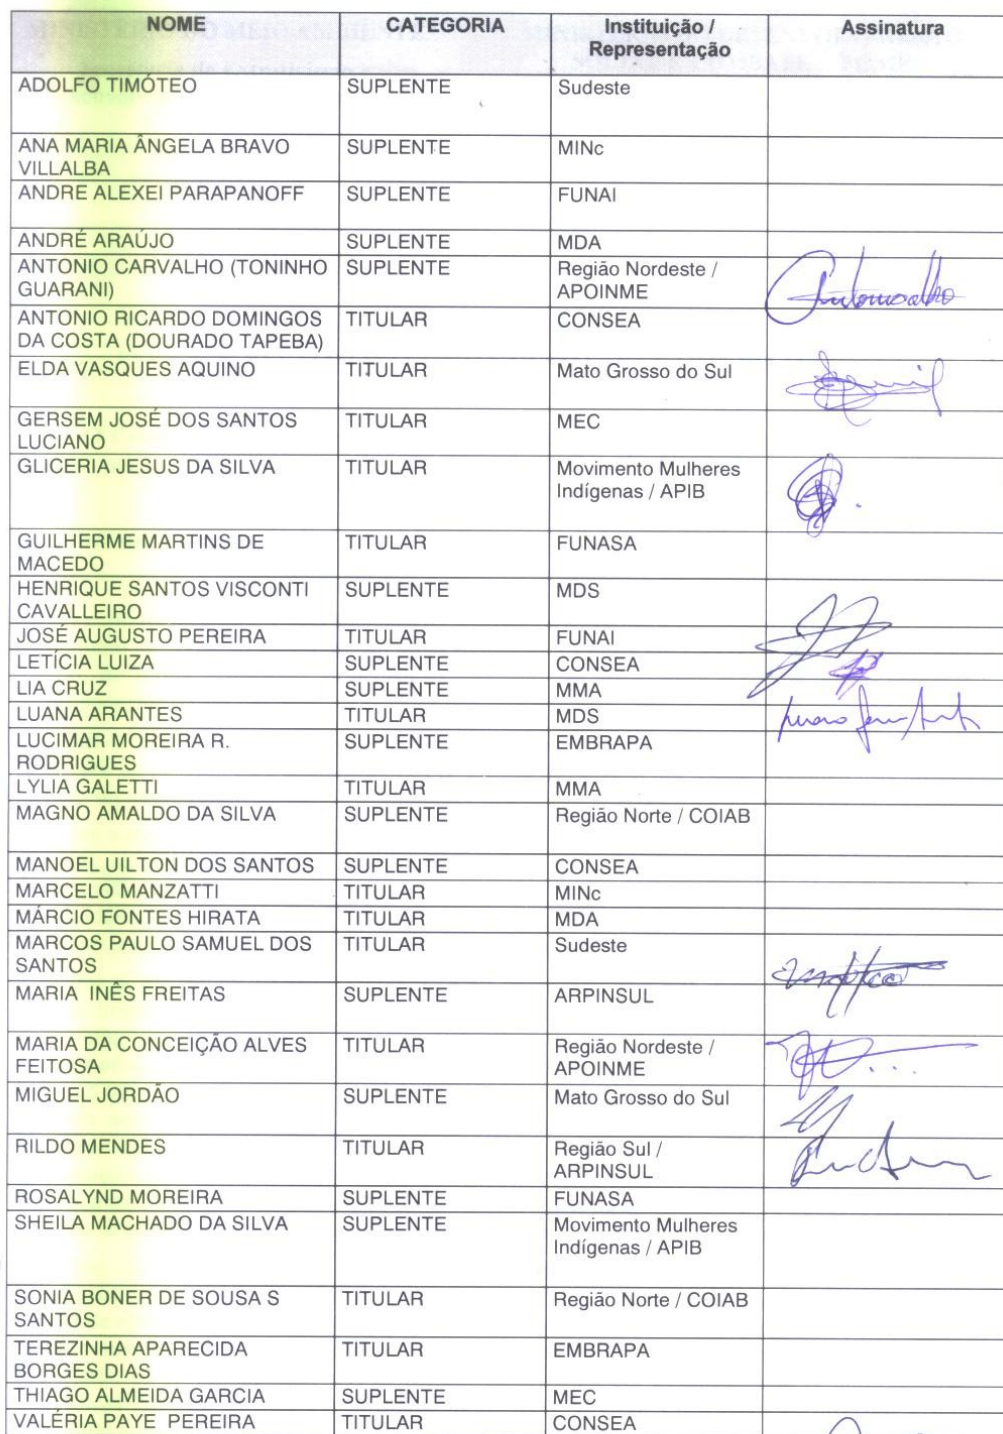 NOME CATEGORIA Instituição / Assinatura
Representação
ADOLFO TIMÓTEO SUPLENTE Sudeste
ANA MARIA ÂNGELA BRAVO SUPLENTE MINc
VILLALBA
ANDRE ALEXEI PARAPANOFF SUPLENTE FUNAI
ANDRÉ ARAÚJO SUPLENTE MDA
ANTONIO CARVALHO (TONINHO SUPLENTE Região Nordeste /
GUARANI) APOINME
ANTONIO RICARDO DOMINGOS TITULAR CONSEA
DA COSTA (DOURADO TAPEBA)
ELDA VASQUES AQUINO TITULAR Mato Grosso do Sul
GERSEM JOSÉ DOS SANTOS TITULAR MEC
LUCIANO
GLICERIA JESUS DA SILVA TITULAR Movimento Mulheres
Indígenas / APIB
GUILHERME MARTINS DE TITULAR FUNASA
MACEDO
HENRIQUE SANTOS VISCONTI SUPLENTE MDS
CAVALLEIRO
JOSÉ AUGUSTO PEREIRA TITULAR FUNAI
LETÍCIA LUIZA SUPLENTE CONSEA
LIA CRUZ SUPLENTE MMA
LUANA ARANTES TITULAR MDS
LUCIMAR MOREIRA R. SUPLENTE EMBRAPA
RODRIGUES
LYLIA GALETTI TITULAR MMA
MAGNO AMALDO DA SILVA SUPLENTE Região Norte / COIAB
MANOEL UILTON DOS SANTOS SUPLENTE CONSEA
MARCELO MANZATTI TITULAR MINc
MÁRCIO FONTES HIRATA TITULAR MDA
MARCOS PAULO SAMUEL DOS TITULAR Sudeste
SANTOS
MARIA INÊS FREITAS SUPLENTE ARPINSUL
MARIA DA CONCEIÇÃO ALVES TITULAR Região Nordeste /
FEITOSA APOINME
MIGUEL JORDÃO SUPLENTE Mato Grosso do Sul
RILDO MENDES TITULAR Região Sul /
ARPINSUL
ROSALYND MOREIRA SUPLENTE FUNASA
SHEILA MACHADO DA SILVA SUPLENTE Movimento Mulheres
Indígenas / APIB
SONIA BONER DE SOUSA S TITULAR Região Norte / COIAB
SANTOS
TEREZINHA APARECIDA TITULAR EMBRAPA
BORGES DIAS
THIAGO ALMEIDA GARCIA SUPLENTE MEC
VALÉRIA PAYE PEREIRA TITULAR CONSEA